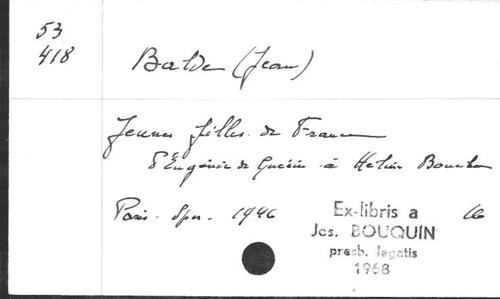 53
418
Balde (Jean)
Jeunes filles de France
d'Eugénie de Guérin à Hélène Boucher
Paris. Spes. 1946 16
Ex-libris a
Jos. BOUQUIN
presb. legatis
1968